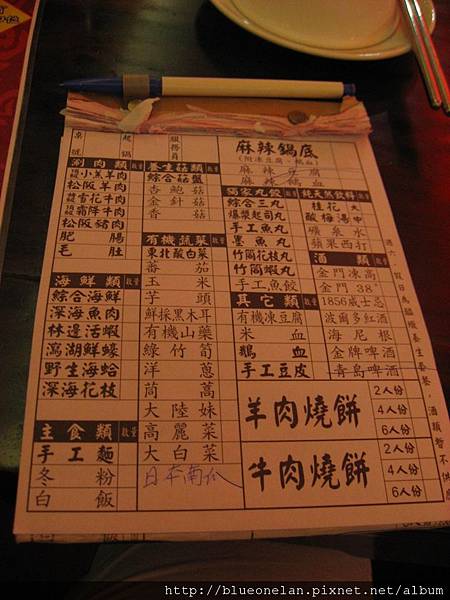 桌號
起鍋
服務員
麻辣鍋底
(附凍豆腐、鴨血)
麻辣豆腐
麻辣鴨血
涮肉類 數量
小羔羊肉
松阪羊肉
雪花牛肉
霜降牛肉
松阪豬肉
肥腸
毛肚
海鮮類 數量
綜合海鮮
深海魚肉
林邊活蝦
澎湖鮮蠔
野生海蛤
深海花枝
主食類 數量
手工麵
冬粉
白飯
養生菇類 數量
綜合菇盤
杏鮑菇
金針菇
香菇
有機蔬菜 數量
東北酸白菜
番茄
玉米
芋頭
鮮採黑木耳
有機山藥
綠竹筍
洋蔥
茼蒿
大陸妹
高麗菜
大白菜
日本南瓜
獨家丸餃 數量
綜合三丸
爆漿起司丸
手工魚丸
墨魚丸
竹筒花枝丸
竹筒蝦丸
手工魚餃
其它類 數量
有機凍豆腐
米血
鴨血
手工豆皮
數量
桂花
酸梅湯
礦泉水
蘋果西打
酒類 數量
金門凍高
金門38°
1856威士忌
波爾多紅酒
海尼根
金牌啤酒
青島啤酒
羊肉燒餅
2人份
4人份
6人份
牛肉燒餅
2人份
4人份
6人份
http://blueonelan.pixnet.net/album